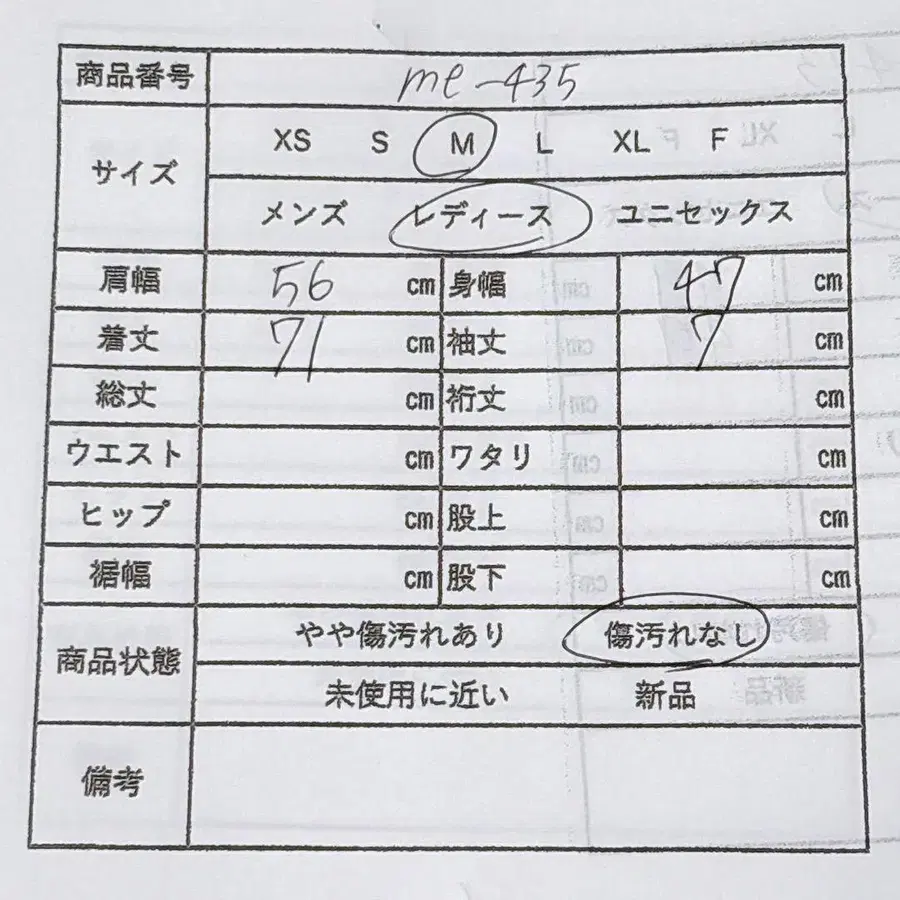 商品番号 me-435
サイズ XS S M L XL F
メンズ レディース ユニセックス
肩幅 56 cm 身幅 47 cm
着丈 71 cm 袖丈 7 cm
総丈 cm 裄丈 cm
ウエスト cm ワタリ cm
ヒップ cm 股上 cm
裾幅 cm 股下 cm
商品状態 やや傷汚れあり 傷汚れなし
未使用に近い 新品
備考